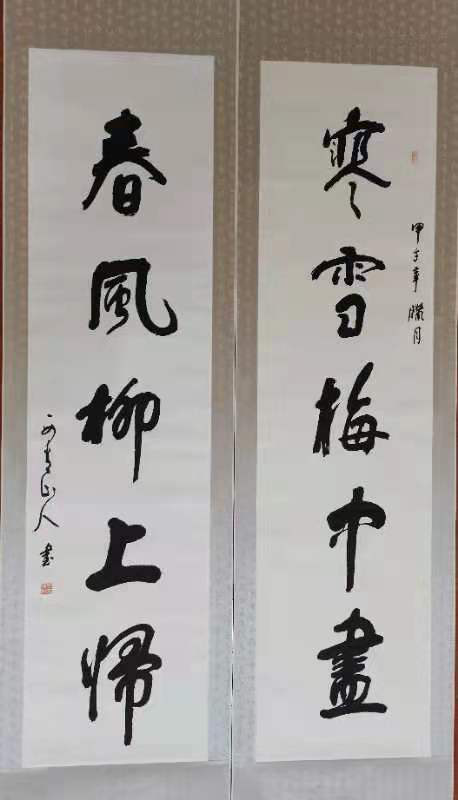 寒雪梅中盡
甲子年臘月
春風柳上歸
山人書